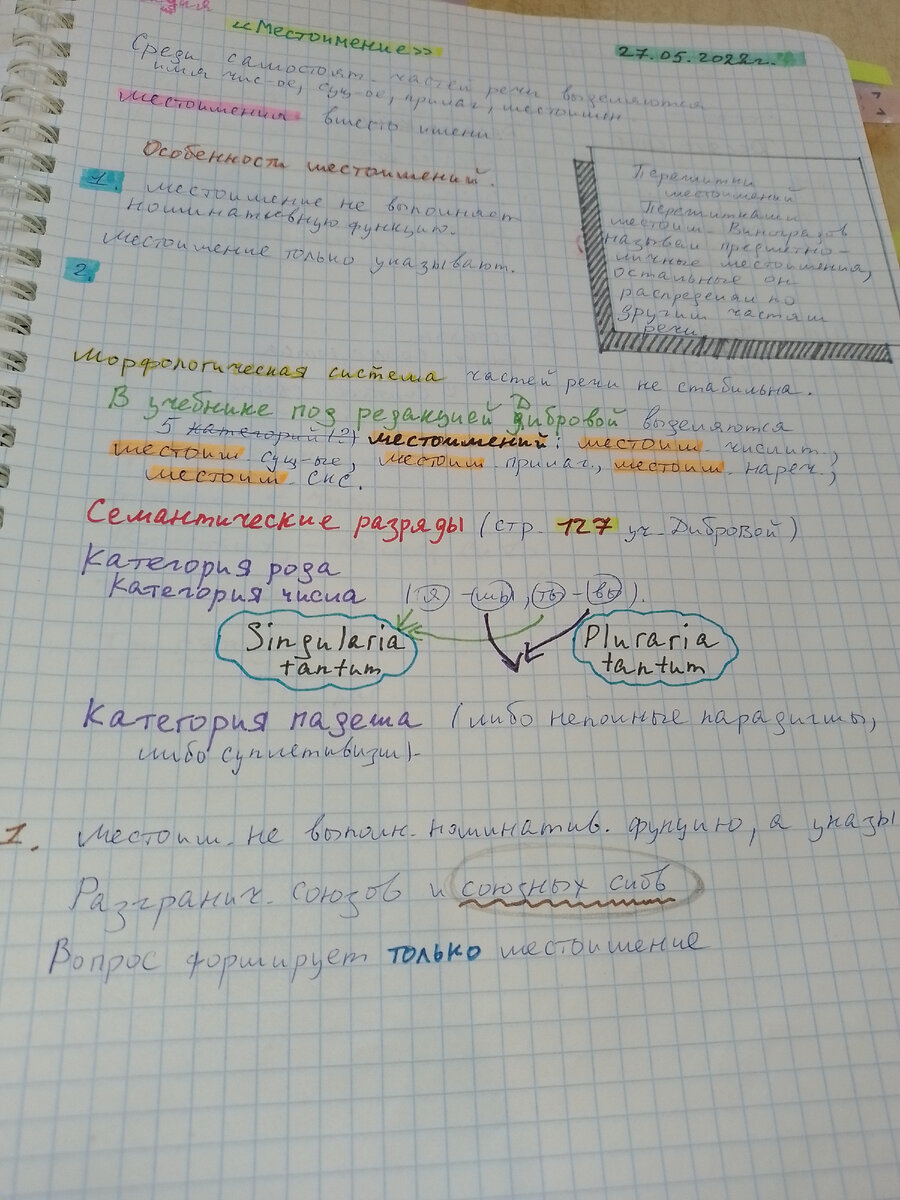 «Местоимение»
27.05.2022г.
Среди самостоят. частей речи выделяются
имя чис-ое, сущ-ое, прилаг, местоимен
местоимения вместо имени.
Особенности местоимений.
1. местоимение не выполняет
номинативную функцию.
Местоимение только указывают.
2.
Пережитки
местоимений
Пережитками
местоим. Виноградов
называл предметно-
личные местоимения,
остальные он
распределял по
другим частям
речи.
Морфологическая система частей речи не стабильна.
В учебнике под редакцией Дибровой выделяются
5 категорий (?) местоимений: местоим. числит.,
местоим. сущ-ые, местоим. прилаг., местоим. нареч.,
местоим. скс.
Семантические разряды (стр. 127 уч. Дибровой)
Категория рода
Категория числа (я - мы, ты - вы).
Singularia
tantum
Pluraria
tantum
Категория падежа (либо неполные парадигмы,
либо суплетивизм).
1. Местоим. не выполн. номинатив. функцию, а указы
Разгранич. союзов и союзных слов
Вопрос формирует только местоимение